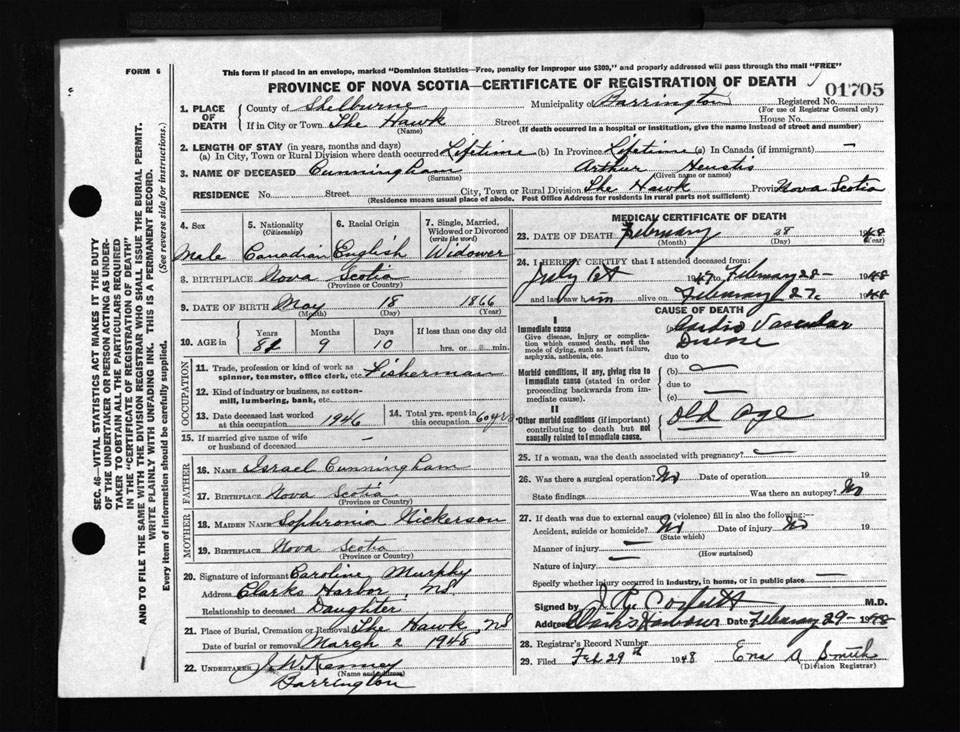 FORM 6
This form if placed in an envelope, marked "Dominion Statistics—Free, penalty for improper use $300," and properly addressed will pass through the mail "FREE"
PROVINCE OF NOVA SCOTIA—CERTIFICATE OF REGISTRATION OF DEATH
01705
SEC. 46—VITAL STATISTICS ACT MAKES IT THE DUTY
OF THE UNDERTAKER OR PERSON ACTING AS UNDER-
TAKER TO OBTAIN ALL THE PARTICULARS REQUIRED
IN THE "CERTIFICATE OF REGISTRATION OF DEATH"
AND TO FILE THE SAME WITH THE DIVISION REGISTRAR WHO SHALL ISSUE THE BURIAL PERMIT.
WRITE PLAINLY WITH UNFADING INK. THIS IS A PERMANENT RECORD.
Every item of information should be carefully supplied. (See reverse side for instructions.)
1. PLACE OF DEATH
County of Shelburne Municipality of Barrington Registered No.
(For use of Registrar General only)
If in City or Town The Hawk Street House No.
(Name) (If death occurred in a hospital or institution, give the name instead of street and number)
2. LENGTH OF STAY (in years, months and days)
(a) In City, Town or Rural Division where death occurred Lifetime (b) In Province Lifetime (c) In Canada (if immigrant) —
3. NAME OF DECEASED Cunningham Arthur
(Surname) (Given name or names)
RESIDENCE No. Street City, Town or Rural Division The Hawk Provi Nova Scotia
(Residence means usual place of abode. Post Office Address for residents in rural parts not sufficient)
4. Sex 5. Nationality (Citizenship) 6. Racial Origin 7. Single, Married, Widowed or Divorced (write the word)
Male Canadian English Widower
8. BIRTHPLACE Nova Scotia
(Province or Country)
9. DATE OF BIRTH May 18 1866
(Month) (Day) (Year)
10. AGE in Years Months Days If less than one day old
81 9 10 hrs. or min.
OCCUPATION
11. Trade, profession or kind of work as spinner, teamster, office clerk, etc. Fisherman
12. Kind of industry or business, as cotton-mill, lumbering, bank, etc.
13. Date deceased last worked at this occupation 1946
14. Total yrs. spent in this occupation 60 yrs
15. If married give name of wife or husband of deceased —
FATHER
16. NAME Israel Cunningham
17. BIRTHPLACE Nova Scotia
(Province or Country)
MOTHER
18. MAIDEN NAME Sophronia Nickerson
19. BIRTHPLACE Nova Scotia
(Province or Country)
20. Signature of informant Caroline Murphy
Address Clarks Harbor, NS
Relationship to deceased Daughter
21. Place of Burial, Cremation or Removal The Hawk, NS
Date of burial or removal March 2 1948
22. UNDERTAKER J. W. Kenney
(Name and address)
Barrington
MEDICAL CERTIFICATE OF DEATH
23. DATE OF DEATH February 28 1948
(Month) (Day) (Year)
24. I HEREBY CERTIFY that I attended deceased from:
July 1st 1947 to February 28- 1948
and last saw him alive on February 27. 1948
CAUSE OF DEATH
I
Immediate cause
Give disease, injury or complication which caused death, not the mode of dying, such as heart failure, asphyxia, asthenia, etc.
(a) Cardio Vascular
Disease
due to
Morbid conditions, if any, giving rise to immediate cause (stated in order proceeding backwards from immediate cause).
(b) —
due to —
(c) —
II
Other morbid conditions (if important) contributing to death but not causally related to immediate cause.
Old age
25. If a woman, was the death associated with pregnancy? —
26. Was there a surgical operation? No Date of operation 19
State findings Was there an autopsy? No
27. If death was due to external causes (violence) fill in also the following:—
Accident, suicide or homicide? No Date of injury No 19
(State which)
Manner of injury —
(How sustained)
Nature of injury —
Specify whether injury occurred in industry, in home, or in public place —
Signed by M.D.
Address Clark's Harbour Date February 29- 1948
28. Registrar's Record Number
29. Filed Feb 29th 1948 A Smith
(Division Registrar)